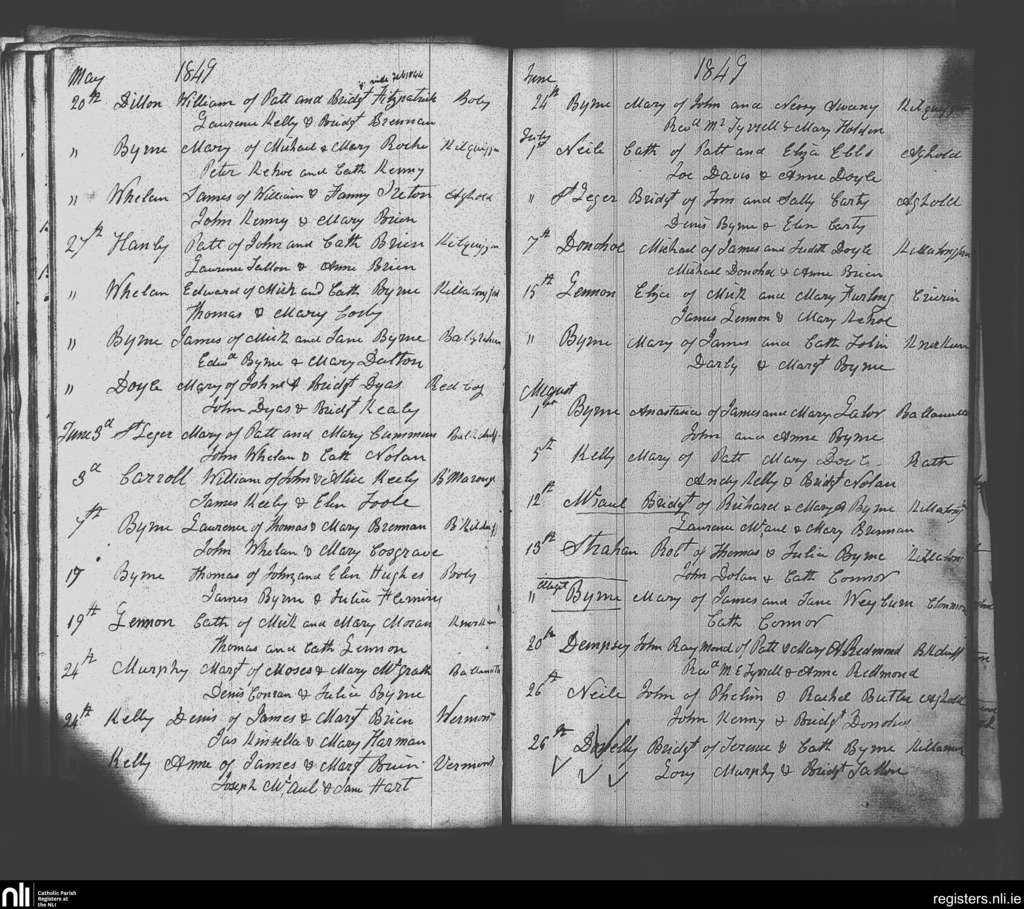 May 1849
vide Feb 1844
20th Dillon William of Patt and Bridgt Fitzpatrick Boly
Laurence Kelly & Bridgt Brennan
" Byrne Mary of Michael & Mary Roche Kilquiggn
Peter Kehoe and Cath Kenny
" Whelan James of William & Fanny Ireton Aghold
John Kenny & Mary Brien
27th Hanly Patt of John and Cath Brien Kilquiggn
Laurence Tallon & Anne Brien
" Whelan Edward of Mick and Cath Byrne
Thomas & Mary Cosby
" Byrne James of Mick and Jane Byrne
Edwd Byrne & Mary Dalton
" Doyle Mary of John & Bridgt Dyas Red Bog
John Dyas & Bridgt Healy
June 3d St Leger Mary of Patt and Mary Cummins
John Whelan & Cath Nolan
3d Carroll William of John & Alice Keely
James Keely & Elen Toole
7th Byrne Laurence of Thomas & Mary Brennan
John Whelan & Mary Cosgrave
17 Byrne Thomas of John and Elen Hughes Booly
James Byrne & Julia Fleming
19th Lennon Cath of Mick and Mary Moran
Thomas and Cath Lennon
24th Murphy Margt of Moses & Mary McGrath
Denis Conran & Julia Byrne
24th Kelly Denis of James & Margt Brien Vermont
Jas Kinsella & Mary Harman
Kelly Anne of James & Margt Brien Vermont
Joseph McAul & Jane Hart
June 1849
24th Byrne Mary of John and Nessy Sweny Kilquiggn
Revd Mr Tyrrell & Mary Holden
July
1st Neile Cath of Patt and Eliza Ebbs Aghold
Joe Davis & Anne Doyle
" St Leger Bridgt of Tom and Sally Carty Aghold
Denis Byrne & Elen Carty
7th Donohoe Michael of James and Judith Doyle
Michael Donohoe & Anne Brien
15th Lennon Eliza of Mick and Mary Furlong
James Lennon & Mary Kehoe
" Byrne Mary of James and Cath Tobin
Darby & Margt Byrne
August
1st Byrne Anastasia of James and Mary Lalor
John and Anne Byrne
5th Kelly Mary of Patt Mary Doyle Rath
Andy Kelly & Bridgt Nolan
12th McAul Bridgt of Richard & Mary A Byrne
Laurence McAul & Mary Brennan
15th Strahan Robt of Thomas & Julia Byrne
John Dolan & Cath Connor
" Byrne Mary of James and Jane Weyburn
Cath Connor
20th Dempsey John Raymond of Patt & Mary A Redmond
Revd M E Tyrrell & Anne Redmond
26th Neile John of Phelim & Rachel Butler Aghold
John Kenny & Bridgt Donohoe
26th Bridgt of Terence & Cath Byrne
Murphy & Bridgt Tallon
nli Catholic Parish
Registers at
the NLI
registers.nli.ie